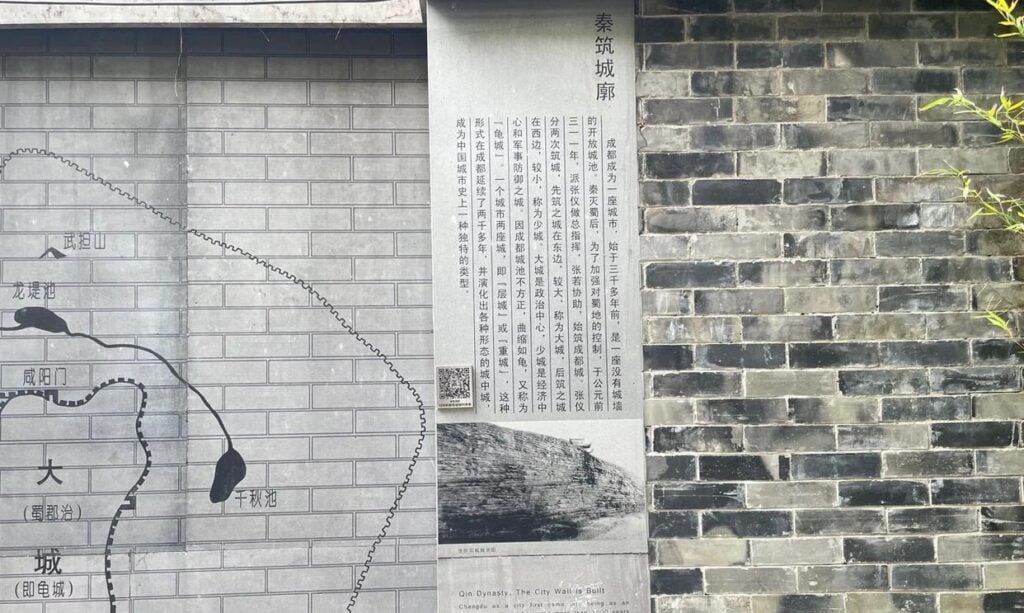 武担山
龙堤池
咸阳门
大
(蜀郡治)
城
(即龟城)
千秋池
秦筑城廓
成都成为一座城市，始于三千多年前，是一座没有城墙
的开放城池。秦灭蜀后，为了加强对蜀地的控制，于公元前
三一一年，派张仪做总指挥，张若协助，始筑成都城。张仪
分两次筑城，先筑之城在东边，较大，称为大城，后筑之城
在西边，较小，称为少城。大城是政治中心，少城是经济中
心和军事防御之城。因成都城池不方正，曲缩如龟，又称为
「龟城」。一个城市两座城，即「层城」或「重城」，这种
形式在成都延续了两千多年，并演化出各种形态的城中城，
成为中国城市史上一种独特的类型。
Qin Dynasty, The City Wall is Built
Chengdu as a city first came into being as an